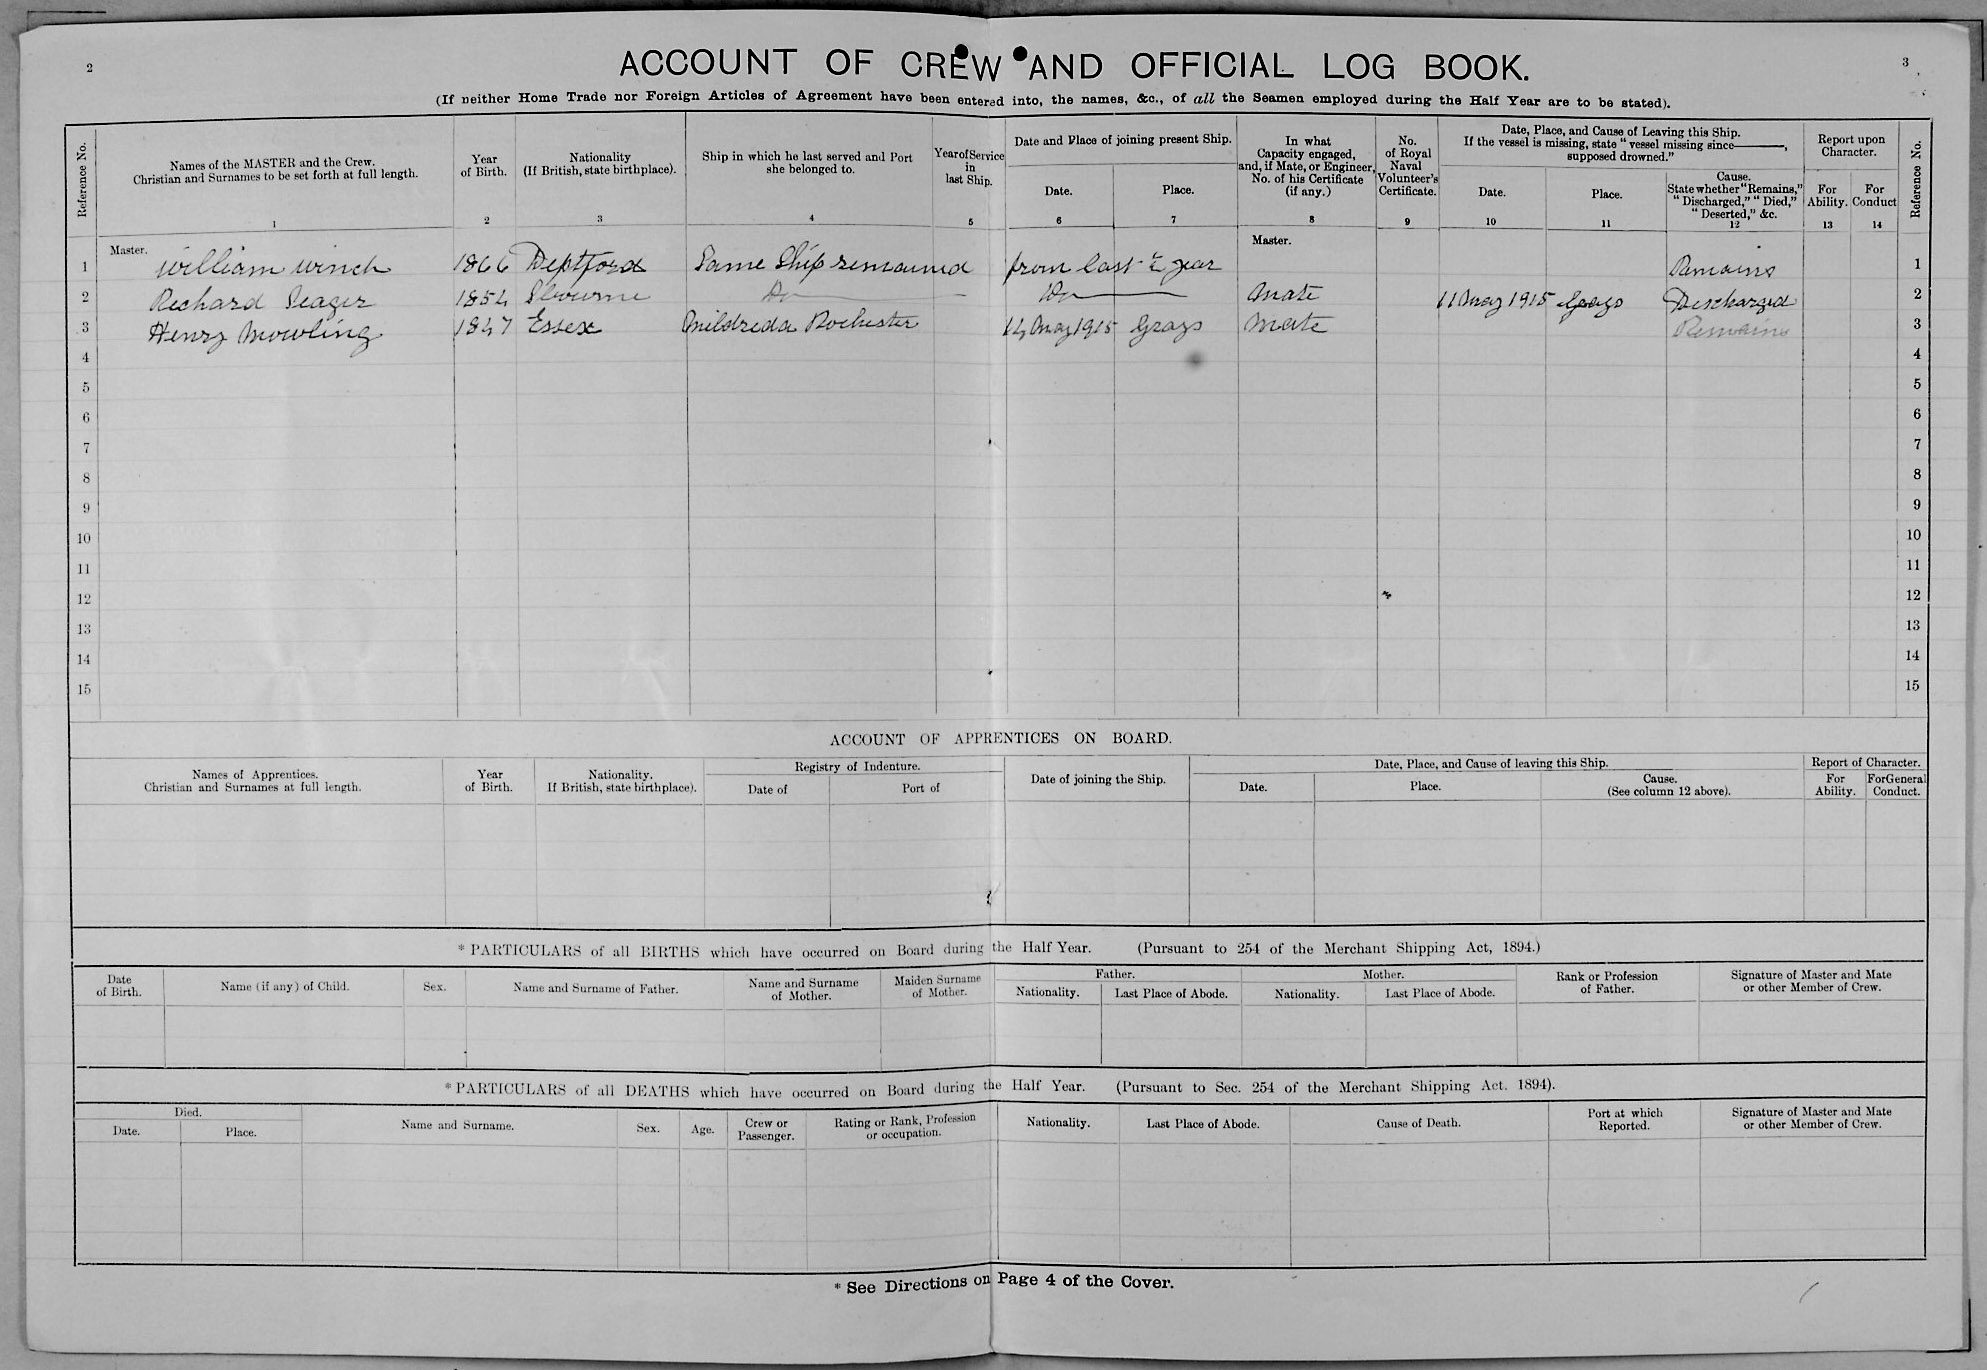 2
3
ACCOUNT OF CREW AND OFFICIAL LOG BOOK.
(If neither Home Trade nor Foreign Articles of Agreement have been entered into, the names, &c., of all the Seamen employed during the Half Year are to be stated).
Reference No.
Names of the MASTER and the Crew.
Christian and Surnames to be set forth at full length.
1
Year
of Birth.
2
Nationality
(If British, state birthplace).
3
Ship in which he last served and Port
she belonged to.
4
Year of Service
in
last Ship.
5
Date and Place of joining present Ship.
Date.
6
Place.
7
In what
Capacity engaged,
and, if Mate, or Engineer,
No. of his Certificate
(if any.)
8
No.
of Royal
Naval
Volunteer's
Certificate.
9
Date, Place, and Cause of Leaving this Ship.
If the vessel is missing, state "vessel missing since ———,
supposed drowned."
Date.
10
Place.
11
Cause.
State whether "Remains,"
"Discharged," "Died,"
"Deserted," &c.
12
Report upon
Character.
For
Ability.
13
For
Conduct
14
Reference No.
1 Master. William Winch 1866 Deptford Same Ship remained from last ½ year Master. Remains 1
2 Richard Seager 1854 Do Do Mate 11 May 1915 Grays Discharged 2
3 Henry Mowling 1847 Essex Mildreda Rochester 14 May 1915 Grays Mate Remains 3
4 4
5 5
6 6
7 7
8 8
9 9
10 10
11 11
12 12
13 13
14 14
15 15
ACCOUNT OF APPRENTICES ON BOARD.
Names of Apprentices.
Christian and Surnames at full length.
Year
of Birth.
Nationality.
If British, state birthplace).
Registry of Indenture.
Date of
Port of
Date of joining the Ship.
Date, Place, and Cause of leaving this Ship.
Date.
Place.
Cause.
(See column 12 above).
Report of Character.
For
Ability.
For General
Conduct.
* PARTICULARS of all BIRTHS which have occurred on Board during the Half Year. (Pursuant to 254 of the Merchant Shipping Act, 1894.)
Date
of Birth.
Name (if any) of Child.
Sex.
Name and Surname of Father.
Name and Surname
of Mother.
Maiden Surname
of Mother.
Father.
Nationality.
Last Place of Abode.
Mother.
Nationality.
Last Place of Abode.
Rank or Profession
of Father.
Signature of Master and Mate
or other Member of Crew.
* PARTICULARS of all DEATHS which have occurred on Board during the Half Year. (Pursuant to Sec. 254 of the Merchant Shipping Act. 1894).
Died.
Date.
Place.
Name and Surname.
Sex.
Age.
Crew or
Passenger.
Rating or Rank, Profession
or occupation.
Nationality.
Last Place of Abode.
Cause of Death.
Port at which
Reported.
Signature of Master and Mate
or other Member of Crew.
* See Directions on Page 4 of the Cover.